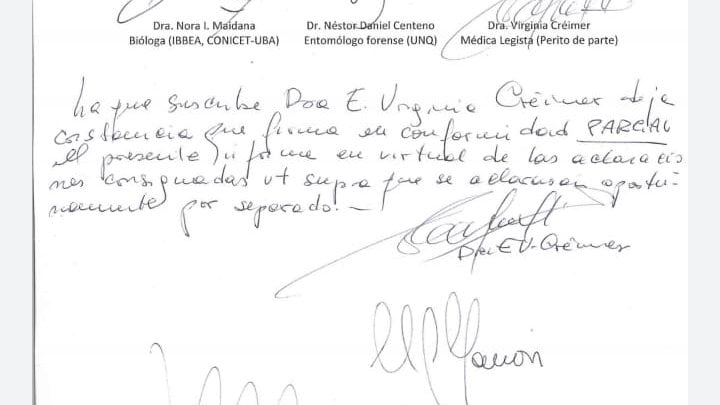 Dra. Nora I. Maidana Dr. Néstor Daniel Centeno Dra. Virginia Créimer
Bióloga (IBBEA, CONICET-UBA) Entomólogo forense (UNQ) Médica Legista (Perito de parte)
La que suscribe Dra E. Virginia Créimer deja
constancia que firma en conformidad PARCIAL
el presente informe en virtual de las aclaracio
nes consignadas ut supra que se aclararan oportu-
namente por separado! —
Dra E V. Créimer